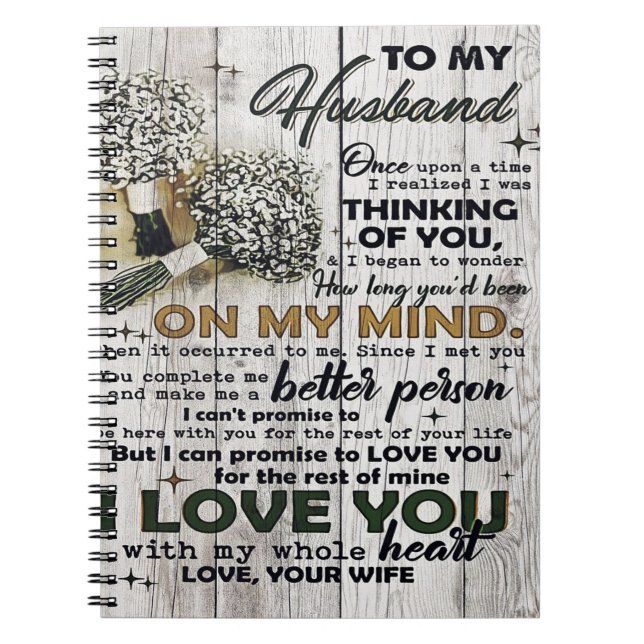 TO MY
Husband
Once upon a time
I realized I was
THINKING
OF YOU,
& I began to wonder
How long you'd been
ON MY MIND.
it occurred to me. Since I met you
complete me
and make me a better person
I can't promise to
be here with you for the rest of your life
But I can promise to LOVE YOU
for the rest of mine
I LOVE YOU
with my whole heart
LOVE, YOUR WIFE